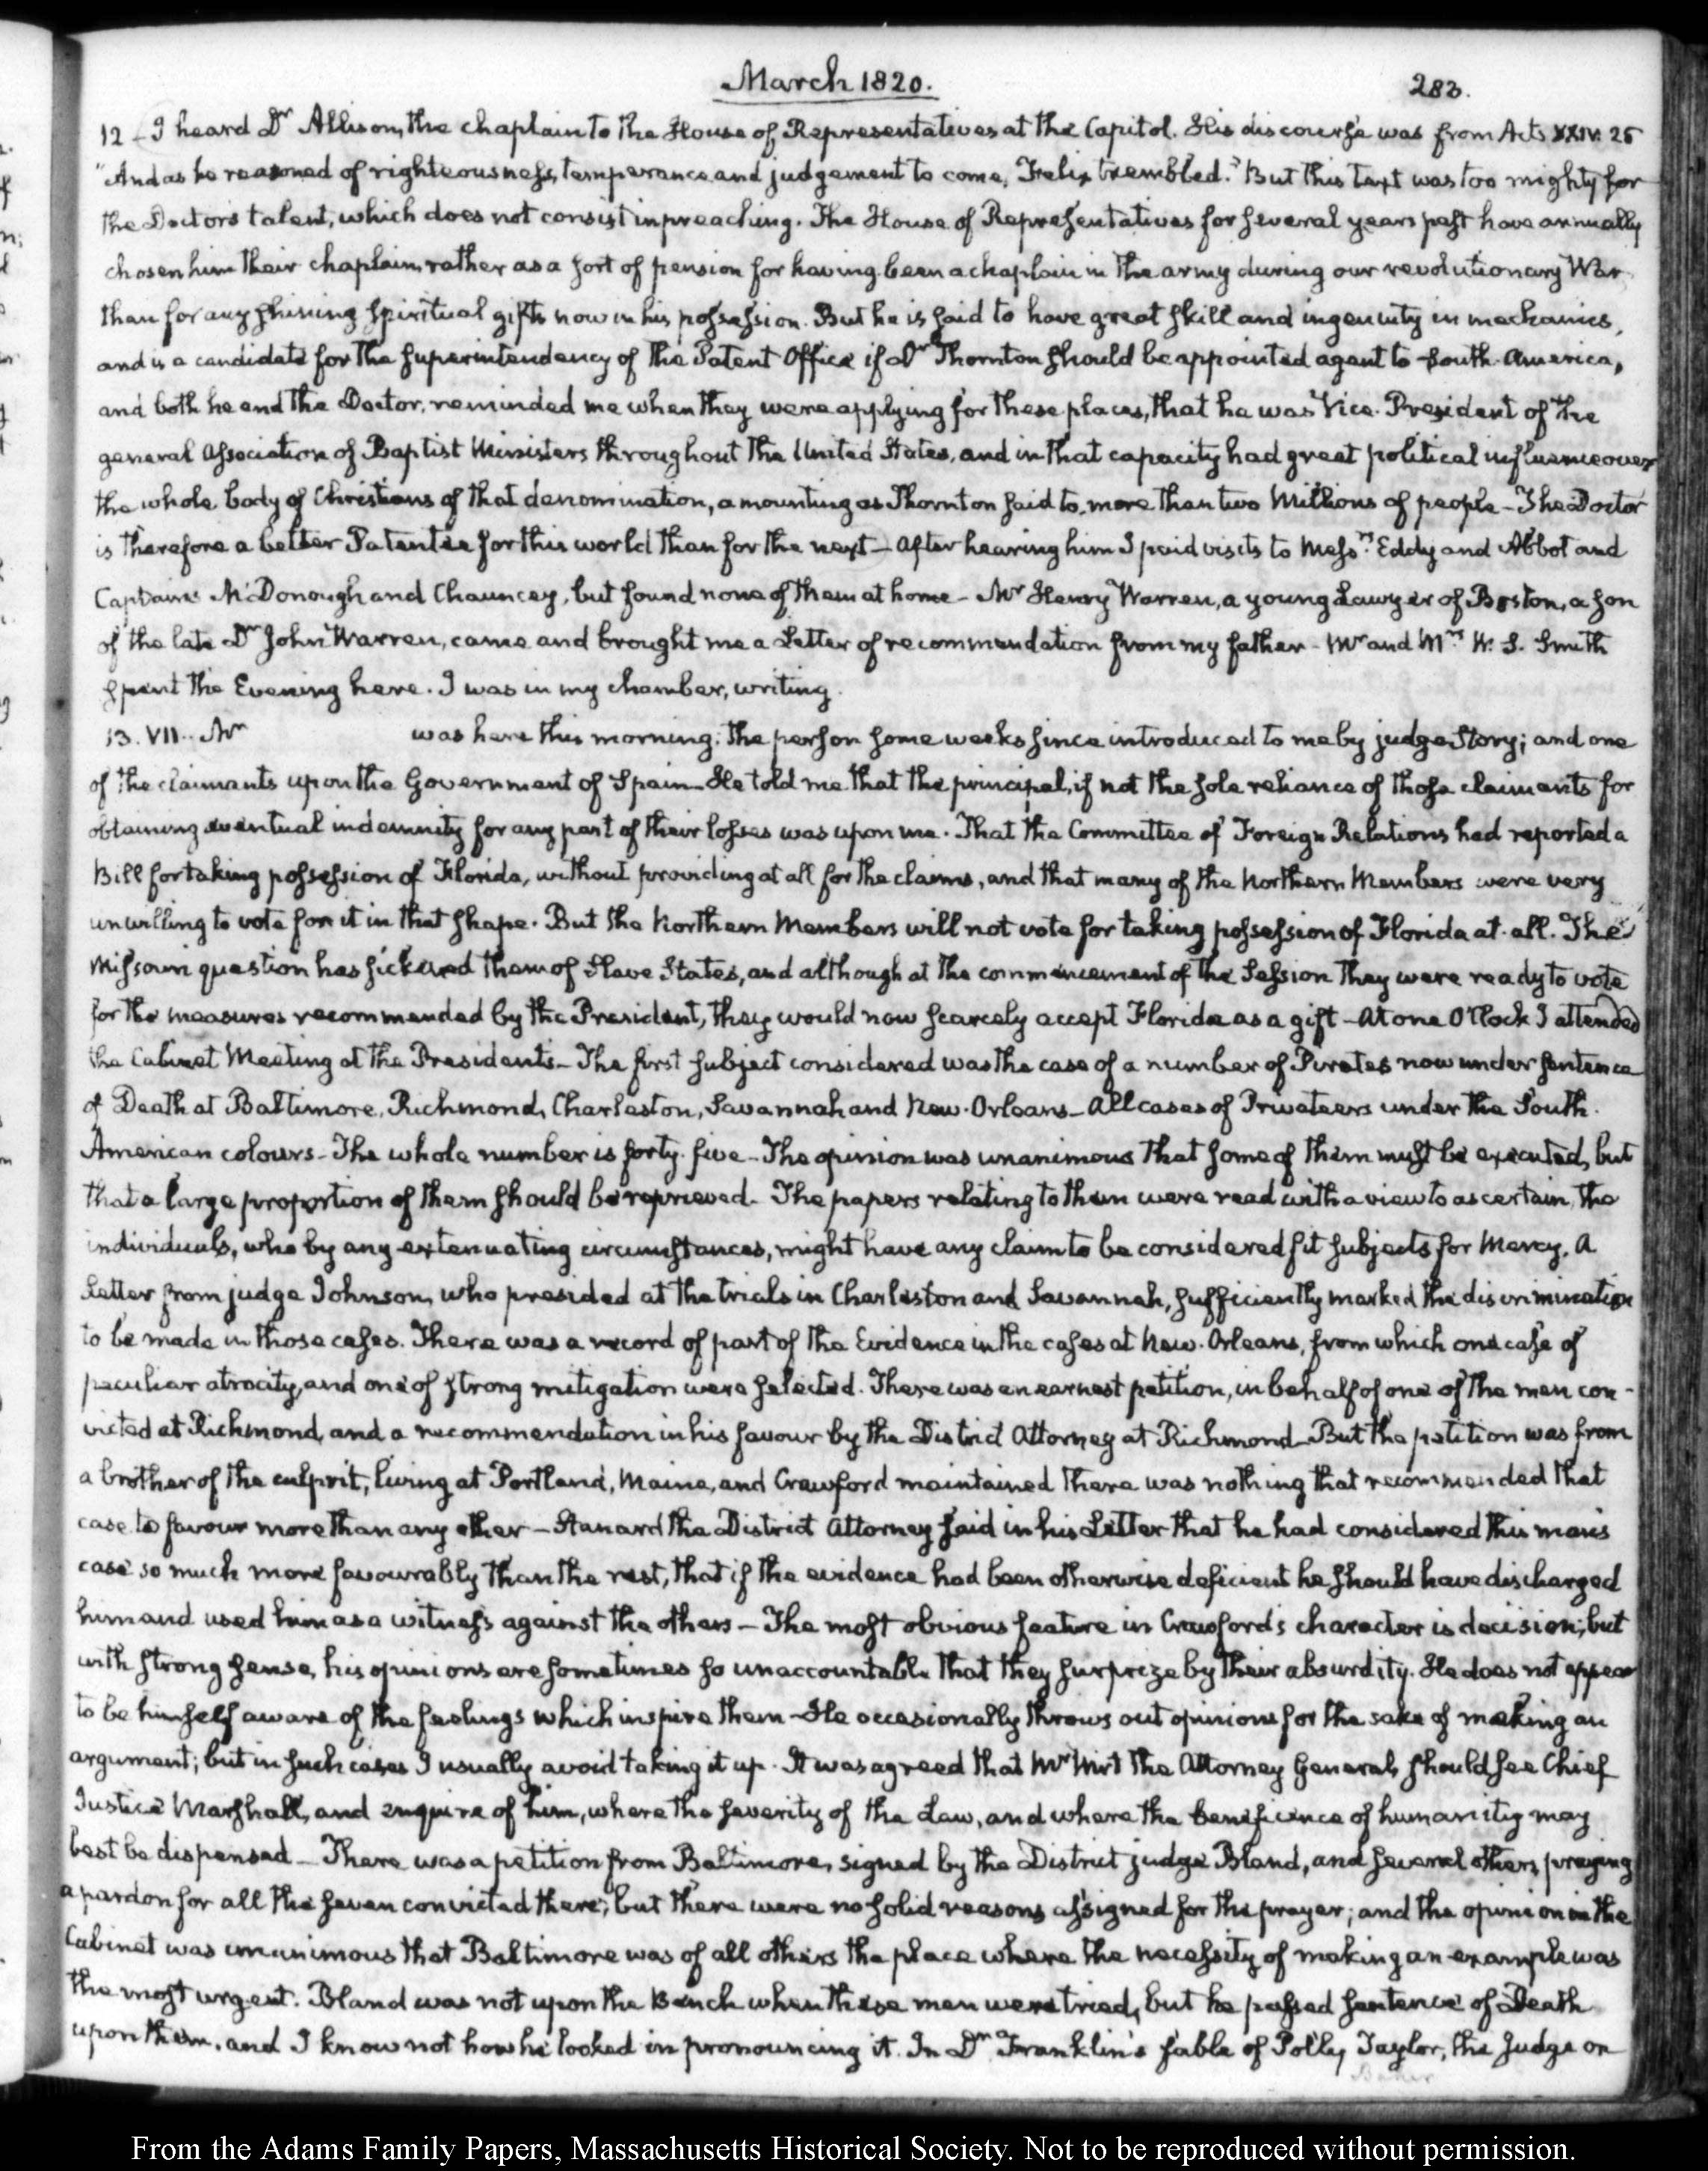 March 1820.
283.
12 - I heard Dr Allison, the chaplain to the House of Representatives at the Capitol. His discourse was from Acts XXIV. 25
"And as he reasoned of righteousness, temperance and judgement to come, Felix trembled." But this text was too mighty for
the Doctor's talent, which does not consist in preaching. The House of Representatives for several years past have annually
chosen him their chaplain, rather as a sort of pension for having been a chaplain in the army during our revolutionary War
than for any shining spiritual gifts now in his possession. But he is said to have great skill and ingenuity in mechanics,
and is a candidate for the superintendency of the Patent Office if Dr Thornton should be appointed agent to South-America,
and both he and the Doctor, reminded me when they were applying for these places, that he was Vice-President of the
general Association of Baptist Ministers throughout the United States, and in that capacity had great political influence over
the whole body of Christians of that denomination, amounting as Thornton said to more than two Millions of people - The Doctor
is therefore a better Patentee for this world than for the next - After hearing him I paid visits to Messrs Eddy and Abbot and
Captains McDonough and Chauncey, but found none of them at home - Mr Henry Warren, a young Lawyer of Boston, a son
of the late Dr John Warren, came and brought me a Letter of recommendation from my father - Mr and Mrs W. S. Smith
spent the Evening here. I was in my chamber, writing.
13. VII. Mr was here this morning; the person some weeks since introduced to me by judge Story; and one
of the claimants upon the Government of Spain - He told me that the principal, if not the sole reliance of those claimants for
obtaining eventual indemnity for any part of their losses was upon me. That the Committee of Foreign Relations had reported a
Bill for taking possession of Florida, without providing at all for the claims, and that many of the Northern Members were very
unwilling to vote for it in that shape. But the Northern Members will not vote for taking possession of Florida at all. The
Missouri question has sickened them of Slave States, and although at the commencement of the Session they were ready to vote
for the measures recommended by the President, they would now scarcely accept Florida as a gift - At one O'Clock I attended
the Cabinet Meeting at the President's - The first subject considered was the case of a number of Pirates now under sentence
of Death at Baltimore, Richmond, Charleston, Savannah and New-Orleans - All cases of Privateers under the South-
American colours - The whole number is forty-five - The opinion was unanimous that some of them must be executed, but
that a large proportion of them should be reprieved - The papers relating to them were read with a view to ascertain the
individuals, who by any extenuating circumstances, might have any claim to be considered fit subjects for Mercy. A
Letter from judge Johnson, who presided at the trials in Charleston and Savannah, sufficiently marked the discrimination
to be made in those cases. There was a record of part of the Evidence in the cases at New-Orleans, from which one case of
peculiar atrocity, and one of strong mitigation were selected. There was an earnest petition, in behalf of one of the men con-
victed at Richmond, and a recommendation in his favour by the District Attorney at Richmond - But the petition was from
a brother of the culprit, living at Portland, Maine, and Crawford maintained there was nothing that recommended that
case to favour more than any other - Stanard the District Attorney said in his Letter that he had considered this man's
case so much more favourably than the rest, that if the evidence had been otherwise deficient he should have discharged
him and used him as a witness against the others - The most obvious feature in Crawford's character is decision; but
with strong sense, his opinions are sometimes so unaccountable that they surprize by their absurdity. He does not appear
to be himself aware of the feelings which inspire them - He occasionally throws out opinions for the sake of making an
argument; but in such cases I usually avoid taking it up. It was agreed that Mr Wirt the Attorney General, should see Chief
Justice Marshall, and enquire of him, where the severity of the Law, and where the beneficence of humanity may
best be dispensed - There was a petition from Baltimore, signed by the District judge Bland, and several others, praying
a pardon for all the seven convicted there; but there were no solid reasons assigned for the prayer; and the opinion in the
Cabinet was unanimous that Baltimore was of all others the place where the necessity of making an example was
the most urgent. Bland was not upon the Bench when these men were tried, but he passed sentence of Death
upon them, and I know not how he looked in pronouncing it. In Dr Franklin's fable of Polly Taylor, the Judge on
Baker
From the Adams Family Papers, Massachusetts Historical Society. Not to be reproduced without permission.